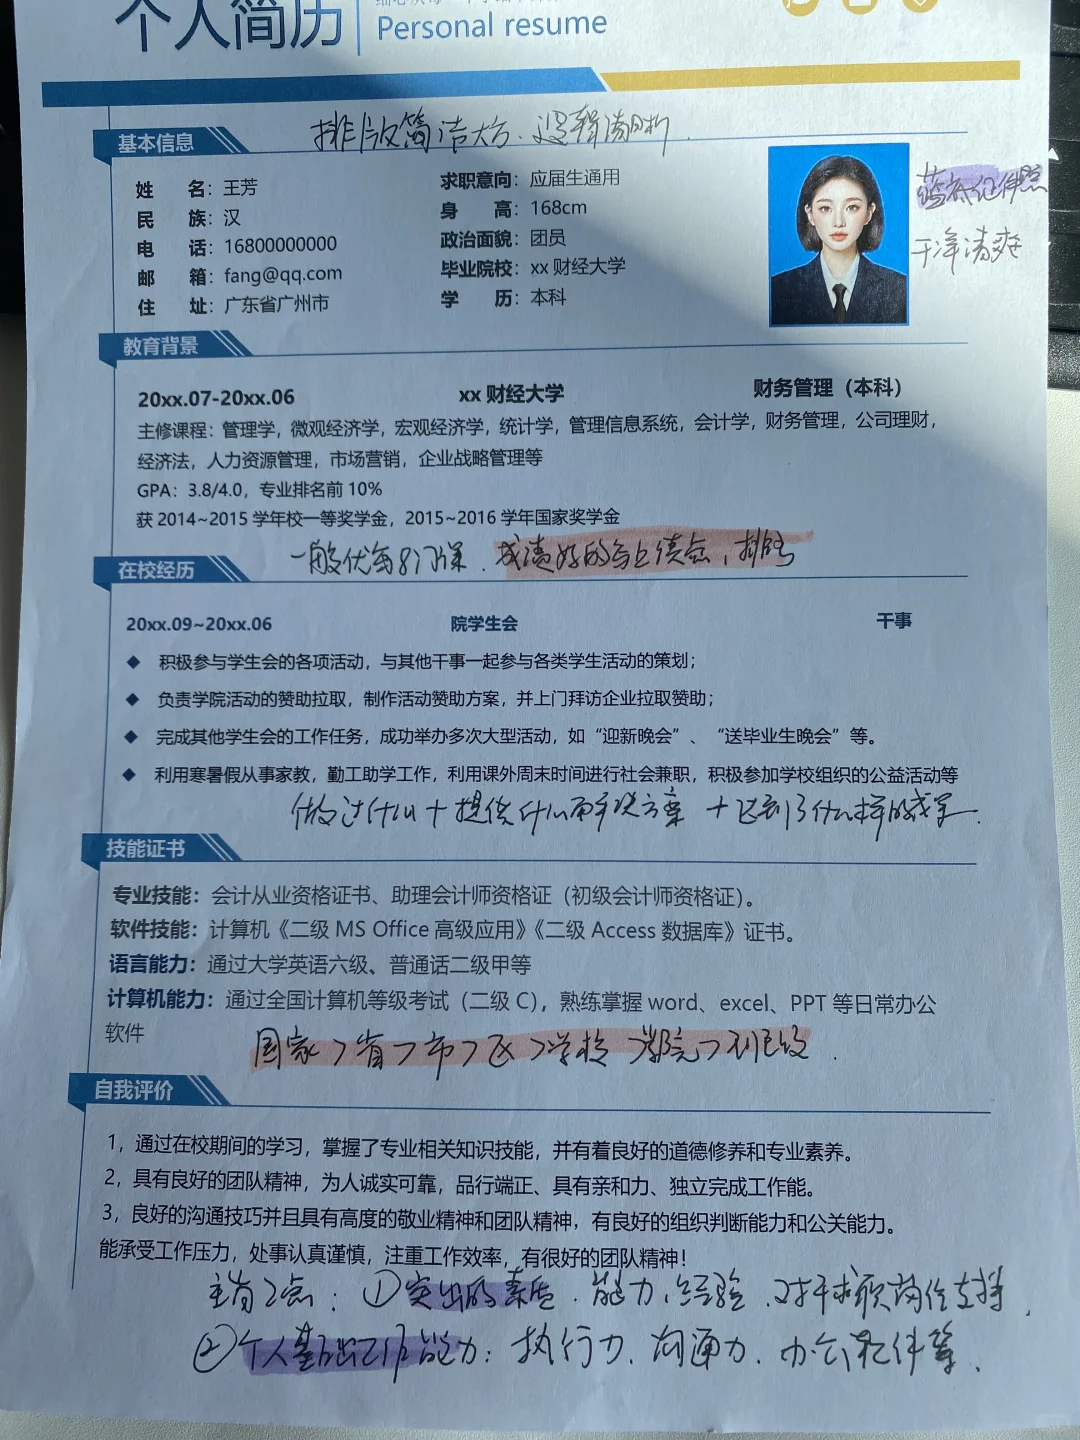 个人简历
Personal resume
排版简洁大方、逻辑清晰
基本信息
姓 名：王芳
求职意向：应届生通用
蓝底证件照
民 族：汉
身 高：168cm
干净清爽
电 话：16800000000
政治面貌：团员
邮 箱：fang@qq.com
毕业院校：xx 财经大学
住 址：广东省广州市
学 历：本科
教育背景
20xx.07-20xx.06 xx 财经大学 财务管理（本科）
主修课程：管理学，微观经济学，宏观经济学，统计学，管理信息系统，会计学，财务管理，公司理财，
经济法，人力资源管理，市场营销，企业战略管理等
GPA：3.8/4.0，专业排名前 10%
获 2014~2015 学年校一等奖学金，2015~2016 学年国家奖学金
一般优每8门课、成绩好的写上绩点、排名
在校经历
20xx.09~20xx.06 院学生会 干事
◆ 积极参与学生会的各项活动，与其他干事一起参与各类学生活动的策划；
◆ 负责学院活动的赞助拉取，制作活动赞助方案，并上门拜访企业拉取赞助；
◆ 完成其他学生会的工作任务，成功举办多次大型活动，如“迎新晚会”、“送毕业生晚会”等。
◆ 利用寒暑假从事家教，勤工助学工作，利用课外周末时间进行社会兼职，积极参加学校组织的公益活动等
做过什么＋提供什么 方案 ＋达到了什么样的成果.
技能证书
专业技能：会计从业资格证书、助理会计师资格证（初级会计师资格证）。
软件技能：计算机《二级 MS Office 高级应用》《二级 Access 数据库》证书。
语言能力：通过大学英语六级、普通话二级甲等
计算机能力：通过全国计算机等级考试（二级 C），熟练掌握 word、excel、PPT 等日常办公
软件
国家>省>市>区>学校>学院>班级.
自我评价
1，通过在校期间的学习，掌握了专业相关知识技能，并有着良好的道德修养和专业素养。
2，具有良好的团队精神，为人诚实可靠，品行端正、具有亲和力、独立完成工作能。
3，良好的沟通技巧并且具有高度的敬业精神和团队精神，有良好的组织判断能力和公关能力。
能承受工作压力，处事认真谨慎，注重工作效率，有很好的团队精神！
主有2点：①突出的素质、能力、经验、对于求职岗位支持.
②个人基础工作能力：执行力、沟通力、办公软件等、